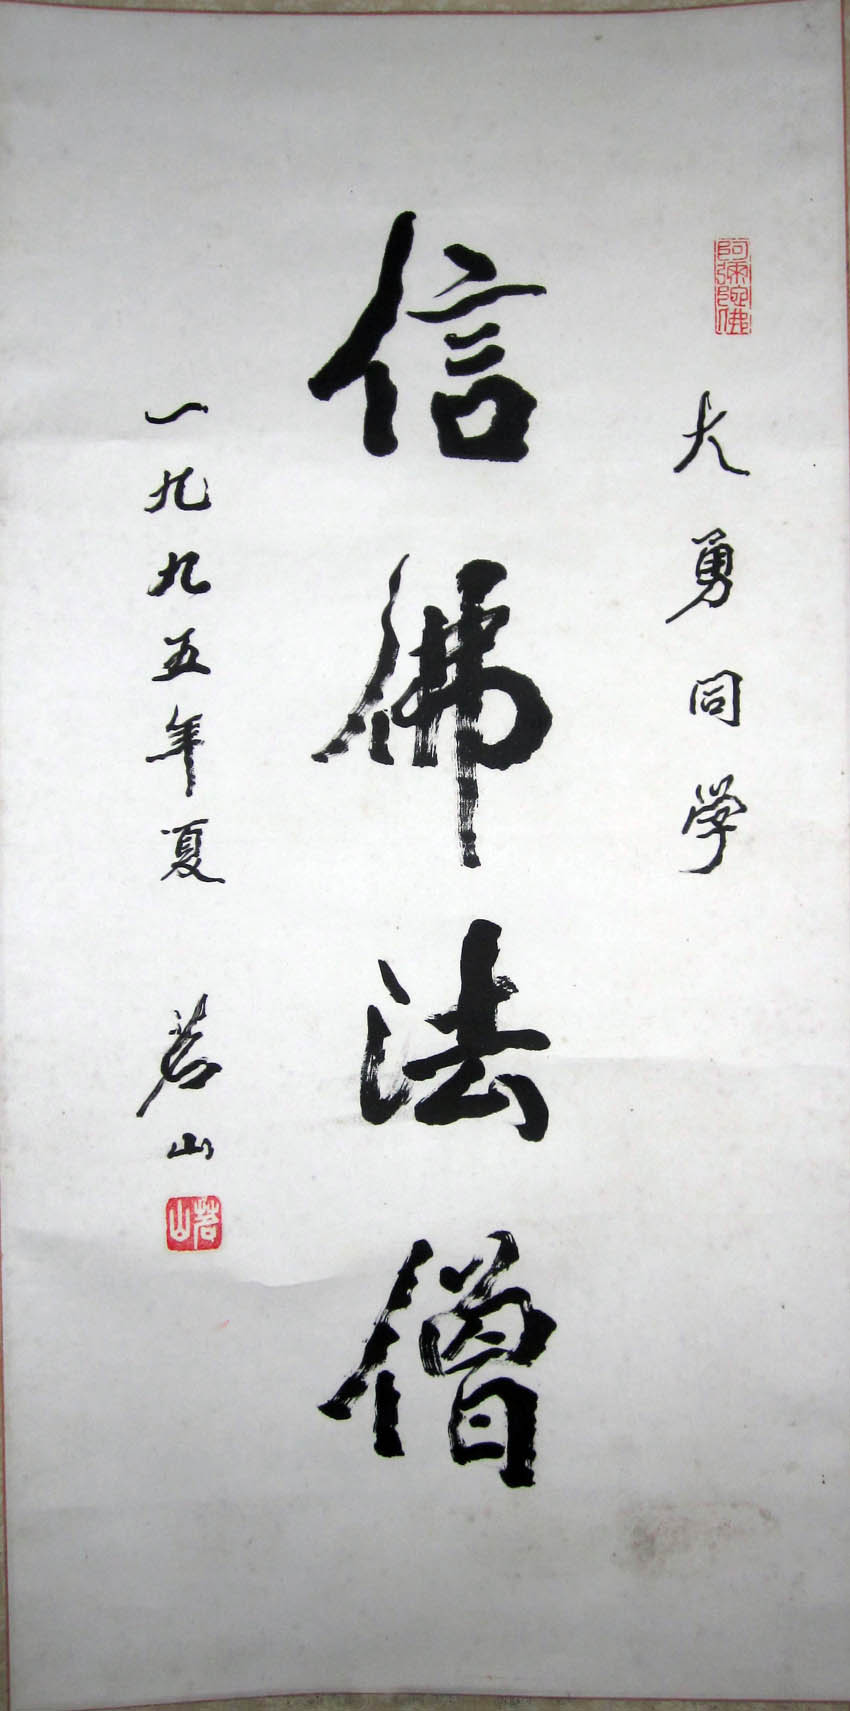 阿彌陀佛
大勇同学
信佛法僧
一九九五年夏 茗山
茗山